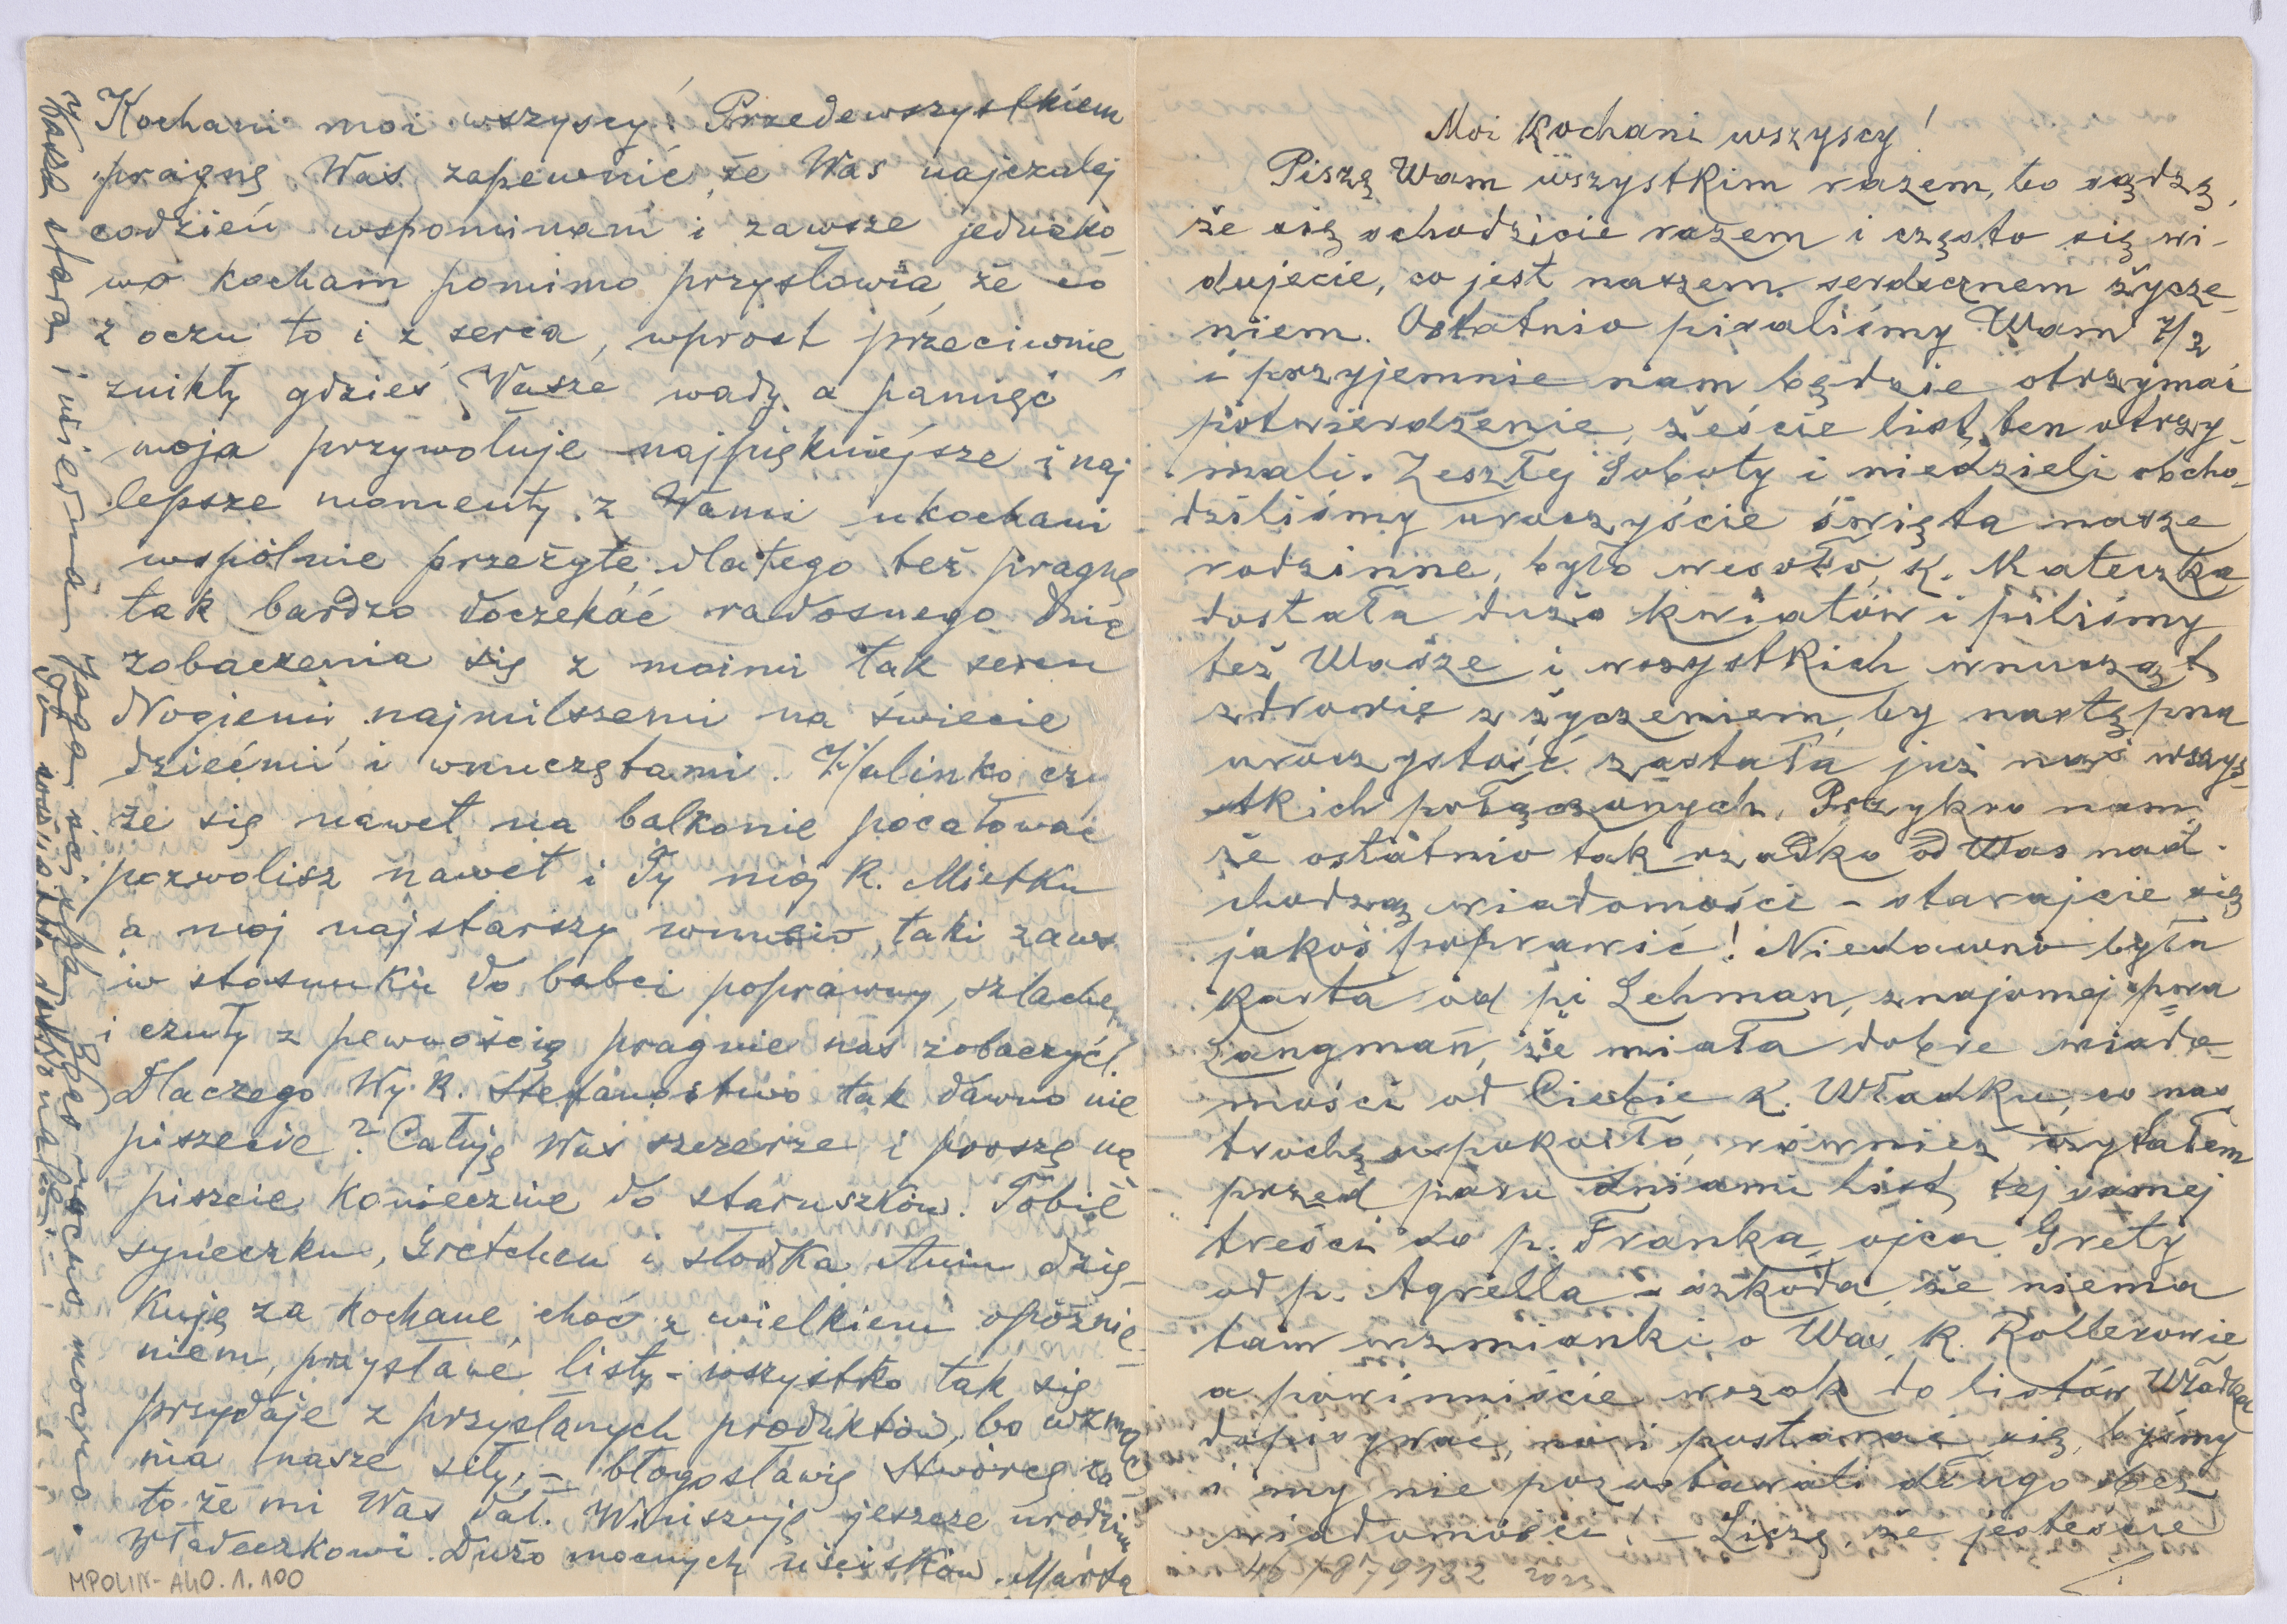 Kochani moi wszyscy! Przedewszystkiem
pragnę Was zapewnić że Was najczulej
codzień wspominam i zawsze jednako-
wo kocham pomimo przysłowia że co
z oczu to i z serca, wprost przeciwnie
znikły gdzieś Wasze wady a pamięć
moja przywołuje najpiękniejsze i naj
lepsze momenty z Wami ukochani
wspólnie przeżyte dlatego też pragnę
tak bardzo doczekać radosnego dnia
zobaczenia się z moimi tak sercu
drogiemi najmilszemi na świecie
dziećmi i wnuczętami. Halinko czy
że się nawet na balkonie pocałować
pozwolisz nawet i Ty mój K. Mietku
a mój najstarszy wnusio, taki zaws
w stosunku do babci poprawny, szlachetny
i czuły z pewnością pragnie nas zobaczyć!
Dlaczego Wy K. Stefanostwo tak dawno nie
piszecie? Całuję Was szczerze i proszę na
piszcie koniecznie do staruszków. Tobie
syneczku, Gretchen i słodka Aniu dzię-
kuję za kochane choć z wielkiem opóźnie-
niem, przysłane listy - wszystko tak się
przydaje z przysłanych produktów, bo wzmac
nia nasze siły, - błogosławię Stwórcę za
to że mi Was dał. Winszuję jeszcze urodzin
Władeczkowi. Dużo mocnych uścisków. Marta
Wasza stara i wiedma Jaga ściska Was mocno.
MPOLIN-A40.1.100
Moi Kochani wszyscy!
Piszę Wam wszystkim razem, bo sądzę,
że się schodzicie razem i często się wi-
dujecie, co jest naszem serdecznem życze-
niem. Ostatnio pisaliśmy Wam 7/2
i przyjemnie nam będzie otrzymać
potwierdzenie, żeście list ten otrzy-
mali. Zeszłej Soboty i niedzieli obcho-
dziliśmy uroczyście święta nasze
rodzinne, było wesoło, K. Mateczka
dostała dużo kwiatów i piliśmy
też Wasze i wszystkich wnucząt
zdrowie z życzeniem by następna
uroczystość zastała już nas wszys-
tkich połączonych. Przykro nam
że ostatnio tak rzadko od Was nad-
chodzą wiadomości - starajcie się
jakoś poprawić! Niedawno była
karta od pi Lehman, znajomej pna
Langman, że miała dobre wiado-
mości od Ciebie K. Władku, co nas
trochę uspokoiło, również czytałem
przed paru dniami list tej samej
treści do p. Franka, ojca Grety
od p. Agrella - szkoda, że niema
tam wzmianki o Was, K. Rollerowie
a powinniście wszak do listów Władka
dopisywać, no i postarać się, byśmy
i my nie pozostawali długo bez
wiadomości! - Liczę, że jesteście